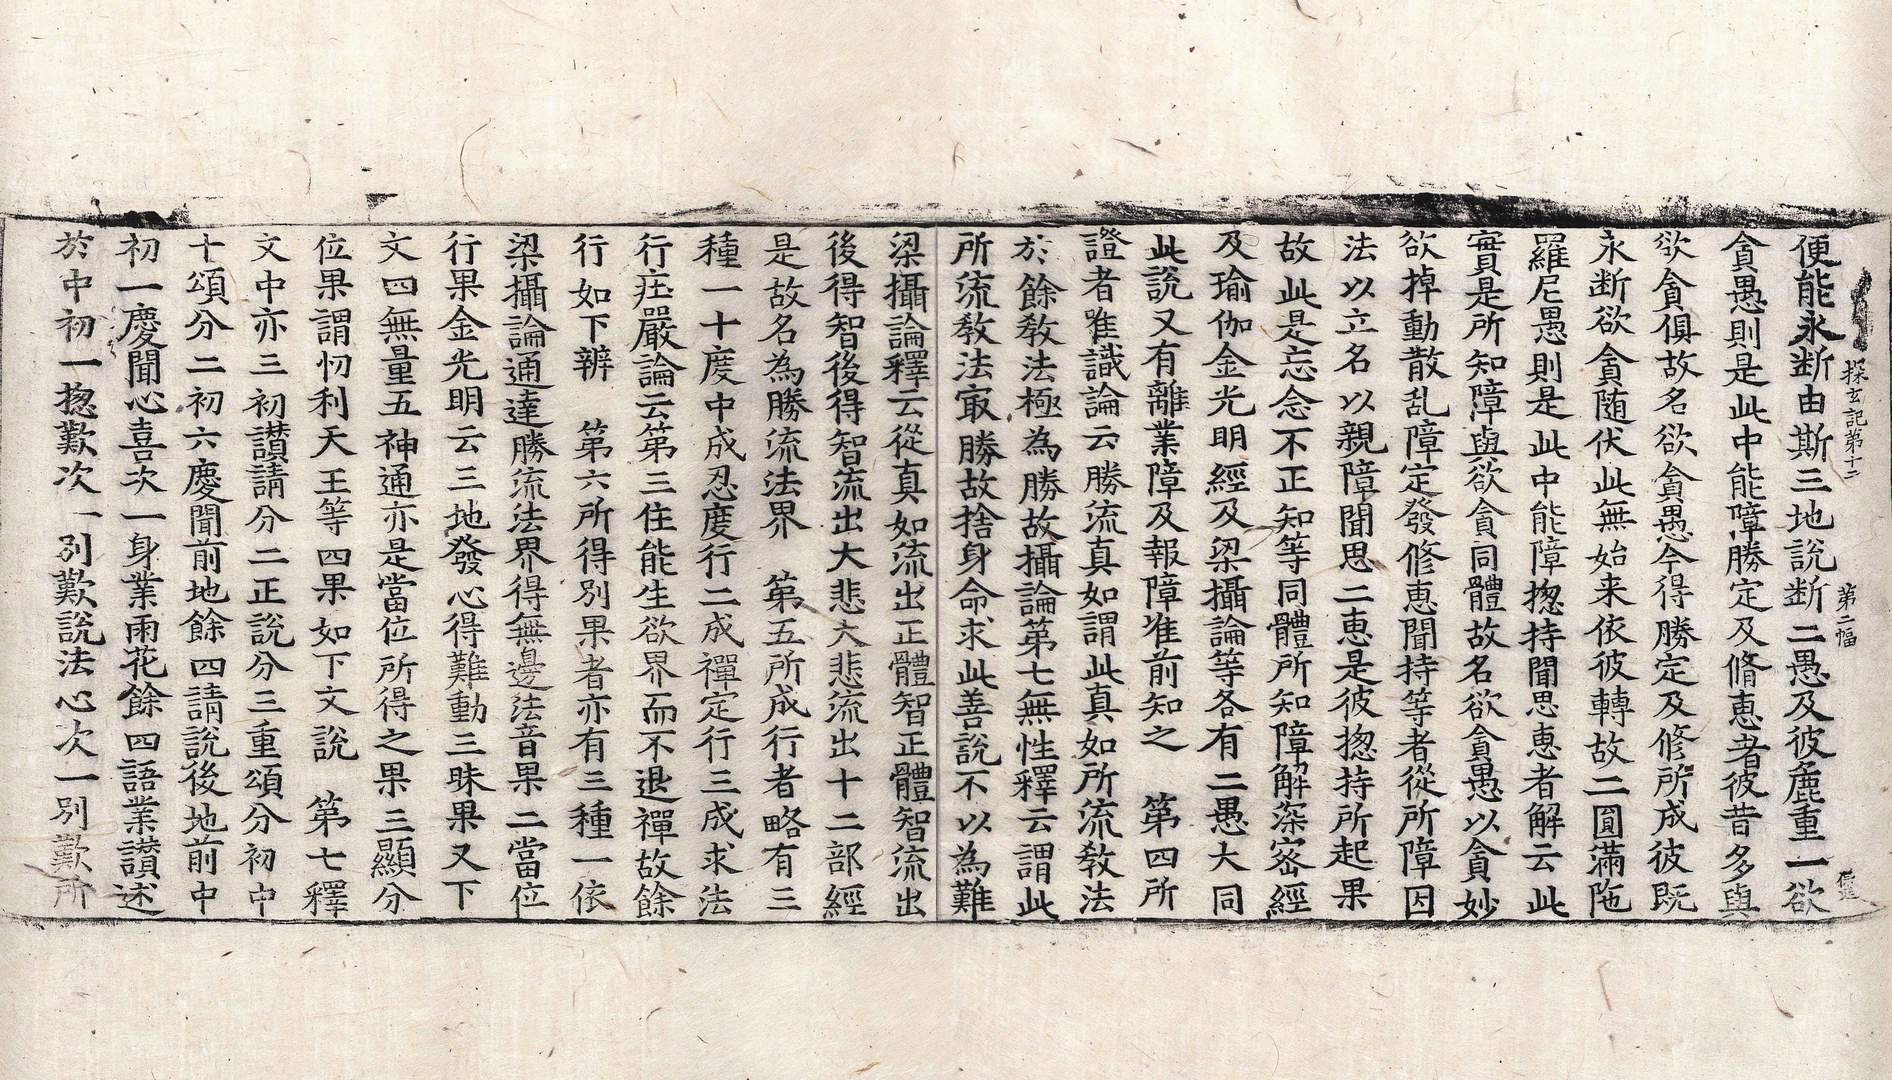 探玄記第十二 第二幅
便能永断由斯三地說断二愚及彼麁重一欲
貪愚則是此中能障勝定及脩恵者彼昔多與
欲貪俱故名欲貪愚今得勝定及修所成彼既
永断欲貪随伏此無始来依彼轉故二圓滿陁
羅尼愚則是此中能障揔持聞思恵者解云此
實是所知障與欲貪同體故名欲貪愚以貪妙
欲掉動散乱障定發修恵聞持等者從所障因
法以立名以親障聞思二恵是彼揔持所起果
故此是忘念不正知等同體所知障解深宻經
及瑜伽金光明經及梁攝論等各有二愚大同
此說又有離業障及報障准前知之 第四所
證者唯識論云勝流真如謂此真如所流教法
於餘教法極為勝故攝論第七無性釋云謂此
所流教法冣勝故捨身命求此善說不以為難
梁攝論釋云從真如流出正體智正體智流出
後得智後得智流出大悲大悲流出十二部經
是故名為勝流法界 第五所成行者略有三
種一十度中成忍度行二成禪定行三成求法
行荘嚴論云第三住能生欲界而不退禪故餘
行如下辨 第六所得別果者亦有三種一依
梁攝論通達勝流法界得無邊法音果二當位
行果金光明云三地發心得難動三昧果又下
文四無量五神通亦是當位所得之果三顯分
位果謂忉利天王等四果如下文說 第七釋
文中亦三初讃請分二正說分三重頌分初中
十頌分二初六慶聞前地餘四請說後地前中
初一慶聞心喜次一身業雨花餘四語業讃述
於中初一揔歎次一別歎說法心次一別歎所